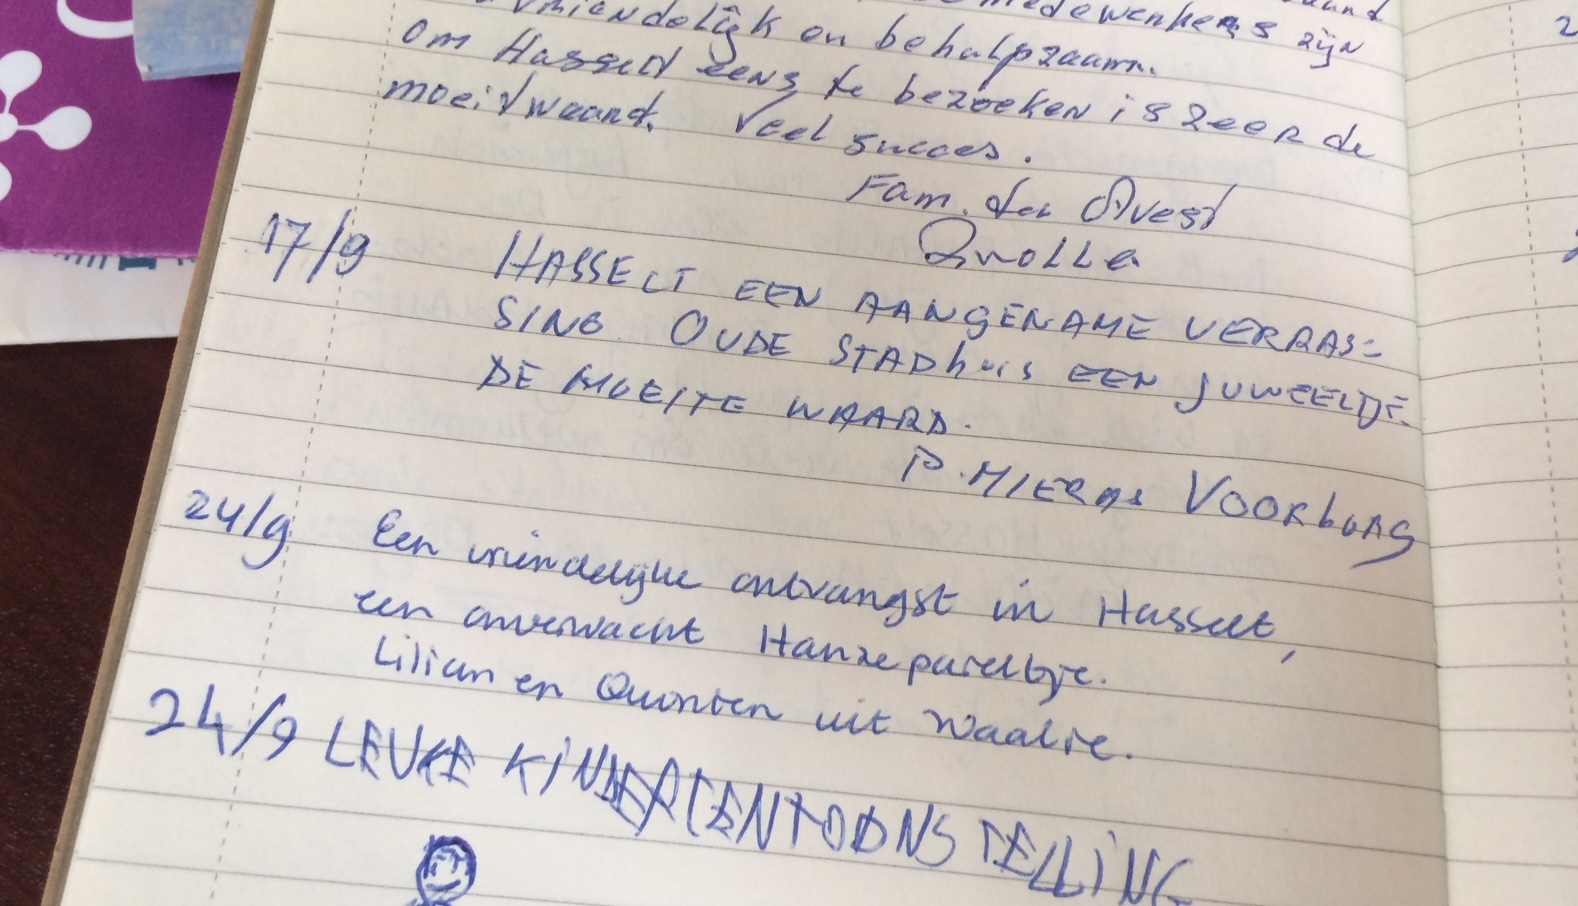 medewerkers zijn
vriendelijk en behulpzaam.
om Hasselt eens te bezoeken is zeer de
moeitwaard. Veel succes.
Fam. der Avest
Zwolle
17/9 HASSELT EEN AANGENAME VERRAS=
SING OUDE STADhuis EEN JUWEELTJE.
DE MOEITE WAARD.
P. MIERAS VOORBURG
24/9 Een vriendelijke ontvangst in Hasselt,
een onverwacht Hanzepareltje.
Lilian en Quinten uit Waalre.
24/9 LEUKE KINDERTENTOONSTELLING